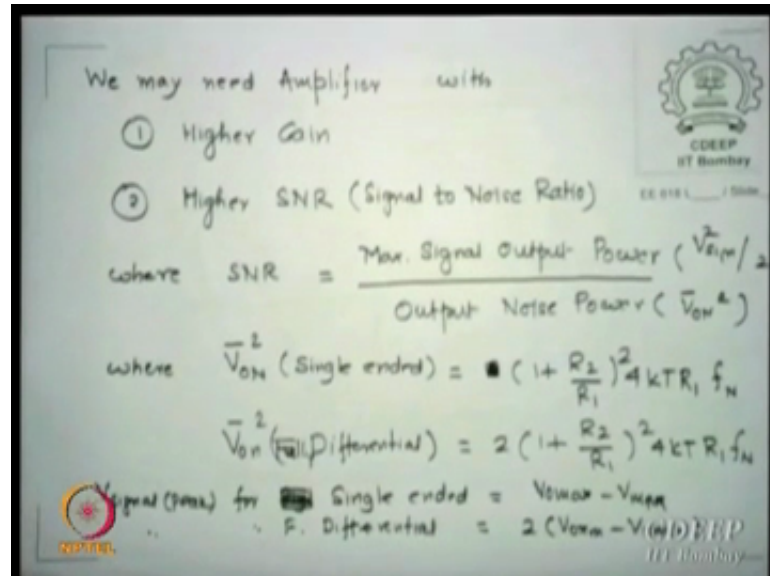 We may need Amplifier with
① Higher Gain
② Higher SNR (Signal to Noise Ratio)
where SNR = Max. Signal Output Power (V²sig/2) / Output Noise Power (V̄ON²)
where V̄²ON (Single ended) = (1 + R2/R1)² 4kTR1 fN
V̄²on (Full Differential) = 2 (1 + R2/R1)² 4kTR1 fN
Vsignal (Peak) for Single ended = Vomax -
" " F. Differential = 2 (
CDEEP
IIT Bombay
EE 618 L / Slide
NPTEL
CDEEP
IIT Bombay